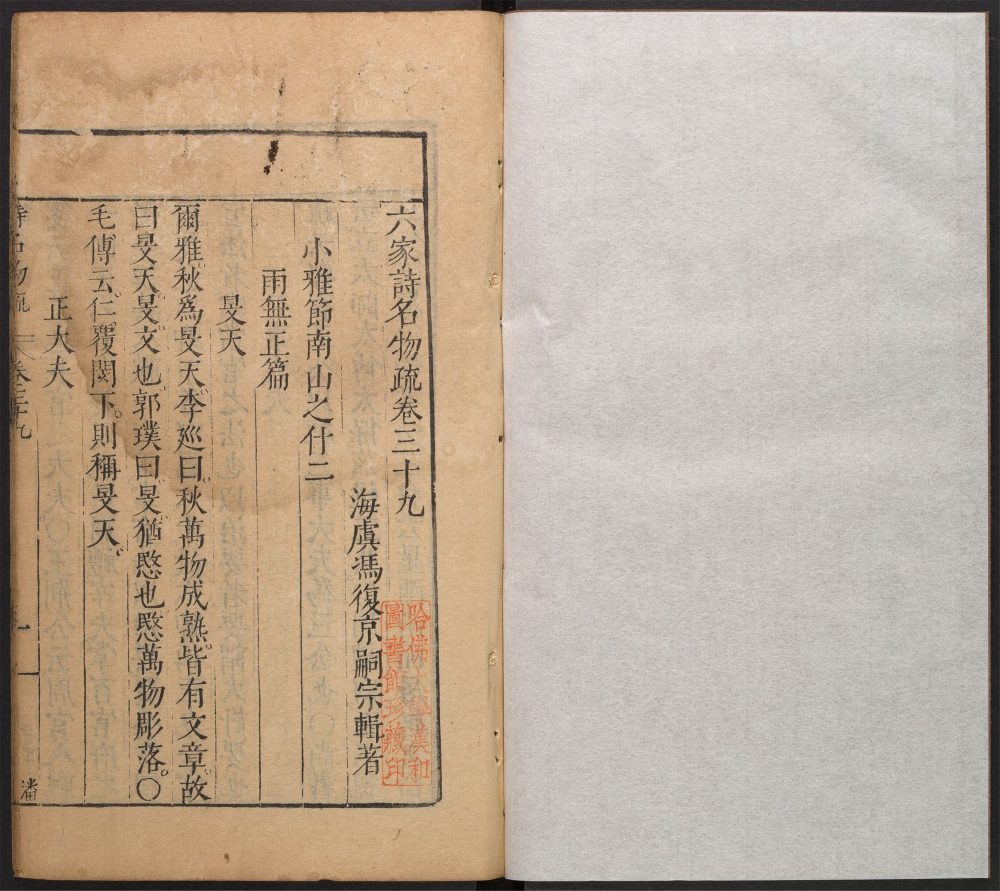 六家詩名物疏卷三十九
海虞馮復京嗣宗輯著
哈佛大學漢和
圖書館珍藏印
小雅節南山之什二
雨無正篇
旻天
爾雅秋爲旻天李廵曰秋萬物成熟皆有文章故
曰旻天旻文也郭璞曰旻猶愍也愍萬物彫落。〇
毛傳云仁覆閔下。則稱旻天。
正大夫
詩名物疏 卷三十九 一
潘